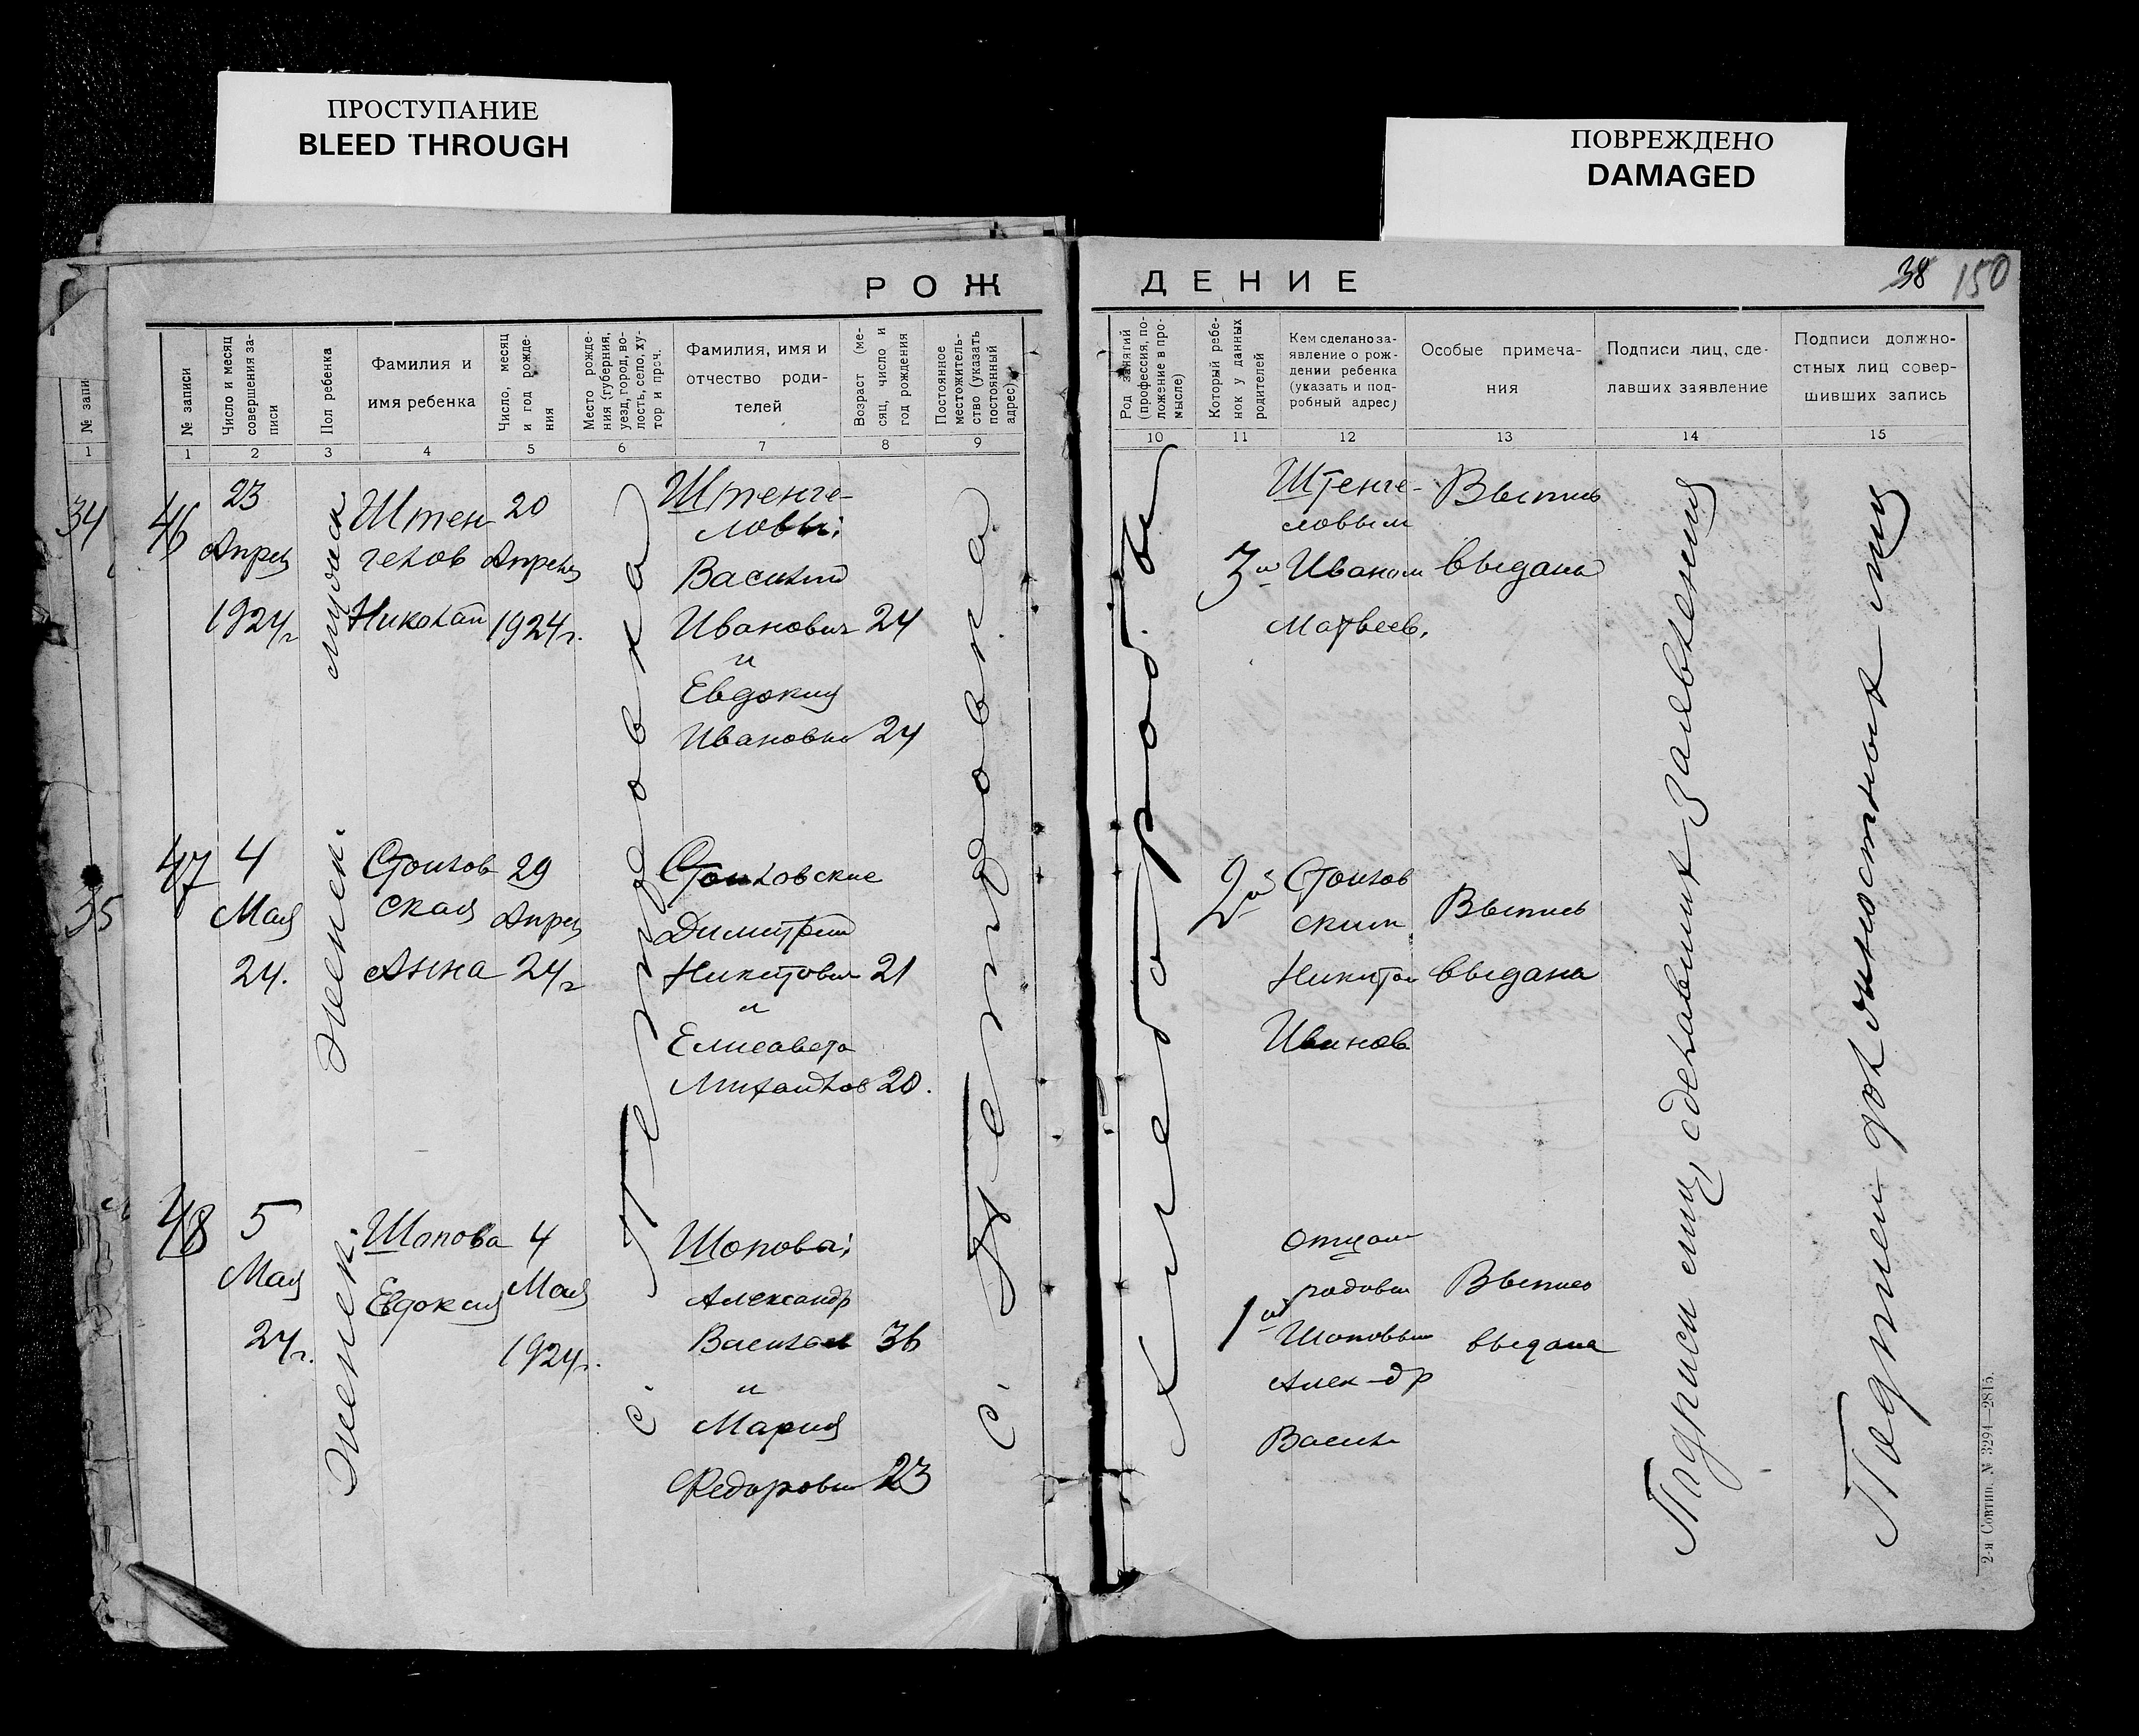 ПРОСТУПАНИЕ
BLEED THROUGH
ПОВРЕЖДЕНО
DAMAGED
РОЖ
ДЕНИЕ
38 150
№ записи
1
34
35
№ записи
Число и месяц
совершения за-
писи
Пол ребенка
Фамилия и
имя ребенка
Число, месяц
и год рожде-
ния
Место рожде-
ния (губерния,
уезд, город, во-
лость, село, ху-
тор и проч.
Фамилия, имя и
отчество роди-
телей
Возраст (ме-
сяц, число и
год рождения
Постоянное
местожитель-
ство (указать
постоянный
адрес)
Род занятий
(профессия, по-
ложение в про-
мысле)
Который ребе-
нок у данных
родителей
Кем сделано за-
явление о рож-
дении ребенка
(указать и под-
робный адрес)
Особые примеча-
ния
Подписи лиц, сде-
лавших заявление
Подписи должно-
стных лиц совер-
шивших запись
1 2 3 4 5 6 7 8 9
10 11 12 13 14 15
46
23
Апреля
1924г
мужск
Штен
гелов
Николай
20
Апреля
1924г.
Штенге-
ловы:
Василий
Иванович 24
и
Евдокия
Ивановна 24
3й
Штенге-
ловым
Иваном
Матвеев.
Выпись
выдана
47
4
Мая
24.
Женск.
Стоилов
ская
Анна
29
Апреля
24г
Стоиловские
Димитрий
Никитович 21
и
Елисавета
Михайлов 20.
2й
Стоилов
ским
Никитой
Иванов
Выпись
выдана
48
5
Мая
24г.
Женск.
Шопова
Евдокия
4
Мая
1924г.
Шопова:
Александр
Василь 36
и
Мария
Федоровна 23
1й
Отцом
Шоповым
Алек-др
Василь
Выпись
выдана
с. Петровка
с. Петровка
хлебороб.
Подписи лиц сделавших Заявления
Подписи должностных лиц
2-я Совтип. № 3294—2815.